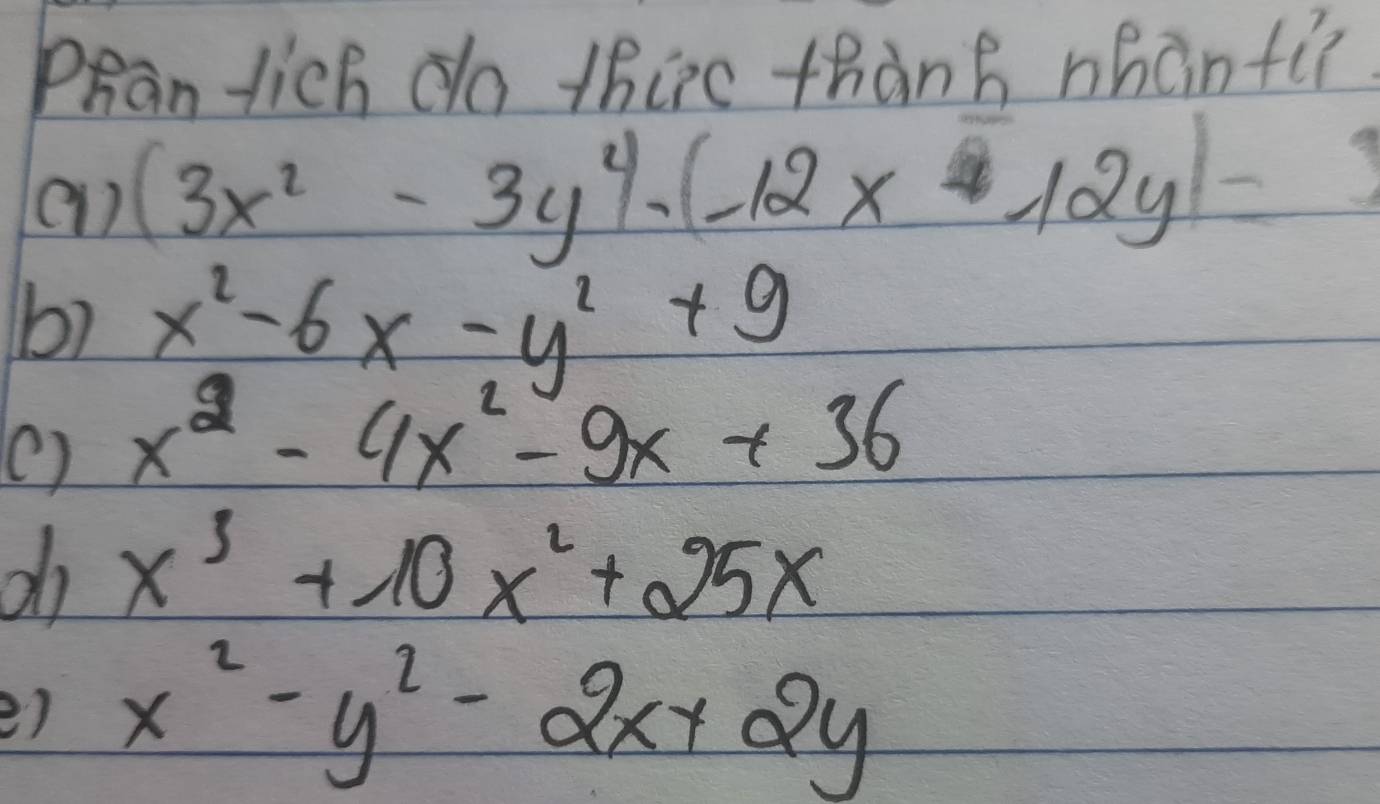 Phân tích đa thức thành nhân tử
a) (3x² - 3y⁴) - (-12x 12y) -
b) x² - 6x - y² + 9
c) x² - 4x² - 9x + 36
d) x³ + 10x² + 25x
e) x² - y² - 2x + 2y